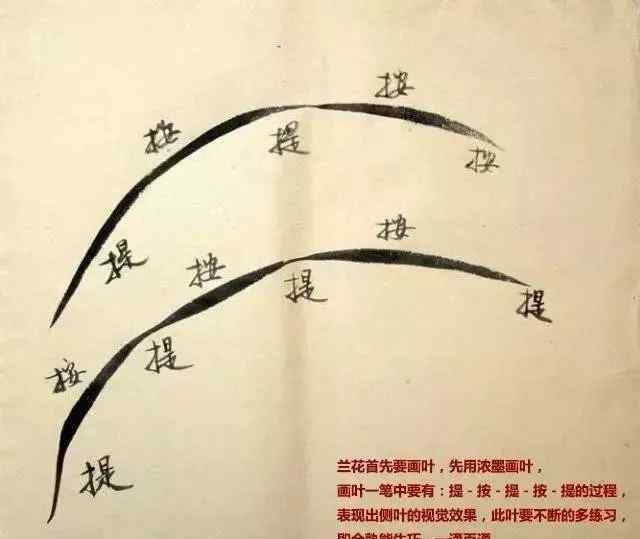 按
按
提
按
提
按
按
提
提
提
按
提
兰花首先要画叶，先用浓墨画叶，
画叶一笔中要有：提-按-提-按-提的过程，
表现出侧叶的视觉效果，此叶要不断的多练习，
即会熟能生巧